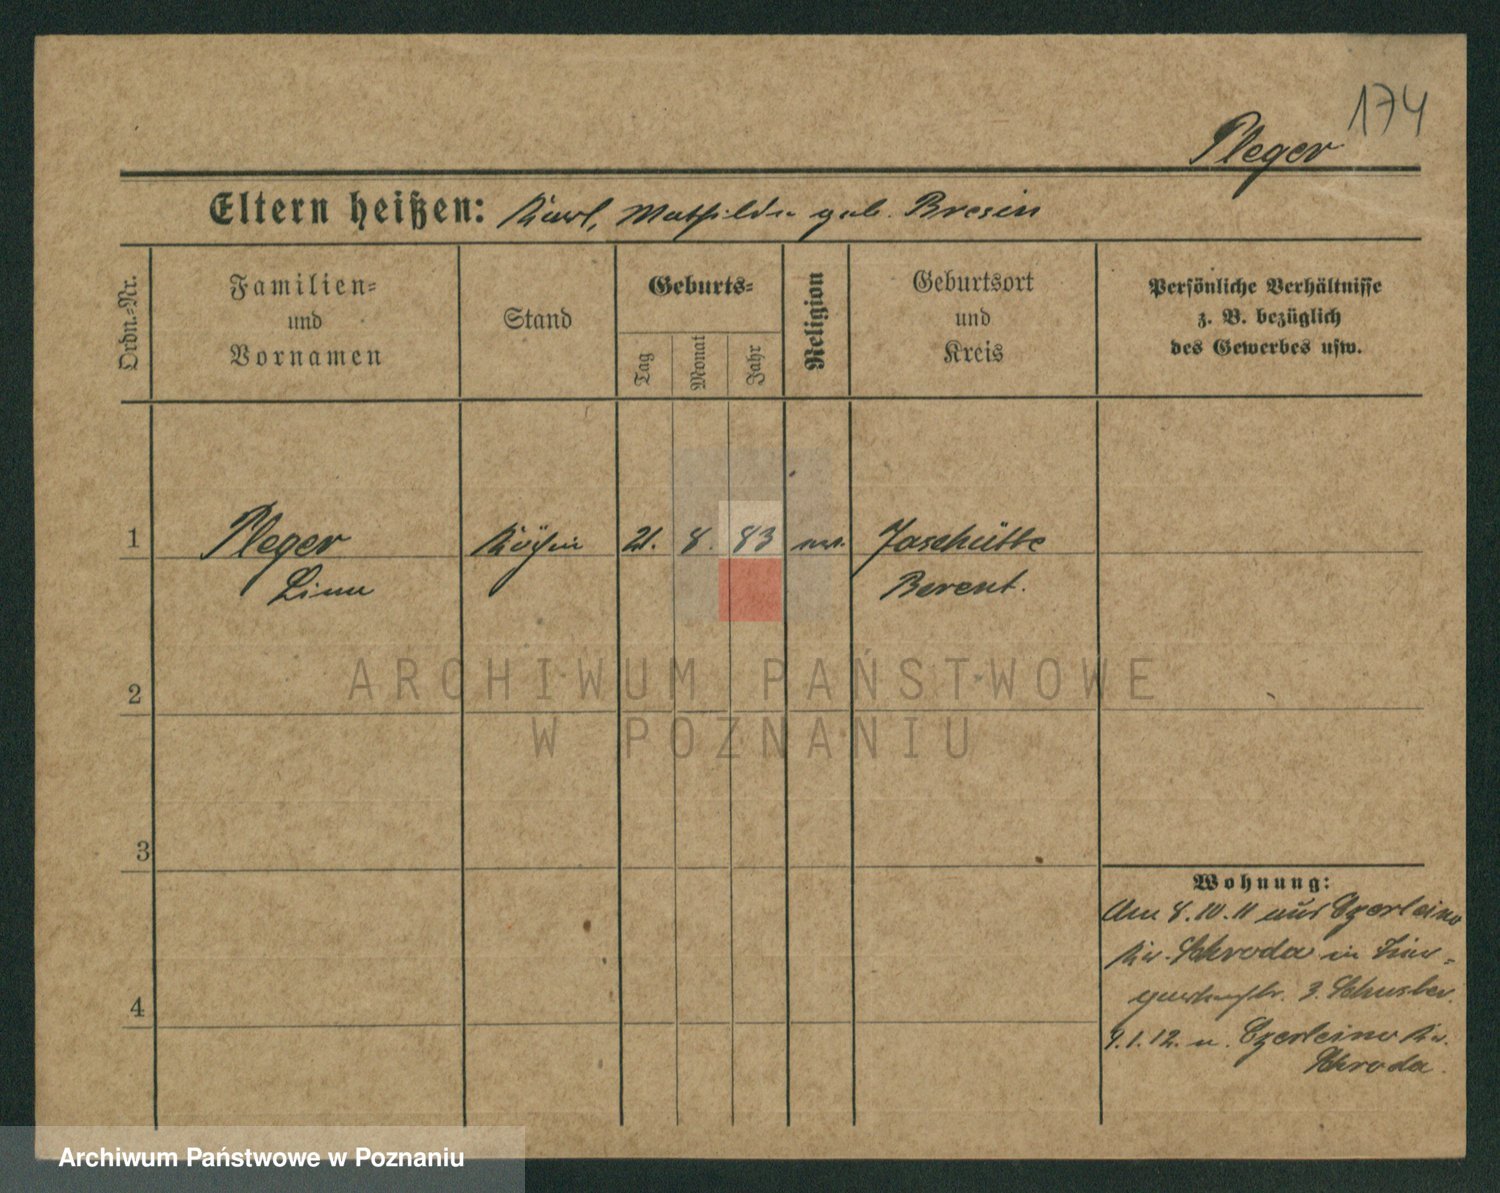 174
Pleger
Eltern heißen: Karl, Mathilde geb. Bresin
Ordn.-Nr.
Familien-
und
Vornamen
Stand
Geburts-
Tag
Monat
Jahr
Religion
Geburtsort
und
Kreis
Persönliche Verhältnisse
z. B. bezüglich
des Gewerbes usw.
1 Pleger Köchin 21. 8. 83 Jaschütte
Berent.
2
3
4
Wohnung:
Am 8.10.11 aus Czerleino
Kr. Schroda in
3. Schuster.
9.1.12. n. Czerleino Kr.
Schroda.
ARCHIWUM PAŃSTWOWE
W POZNANIU
Archiwum Państwowe w Poznaniu